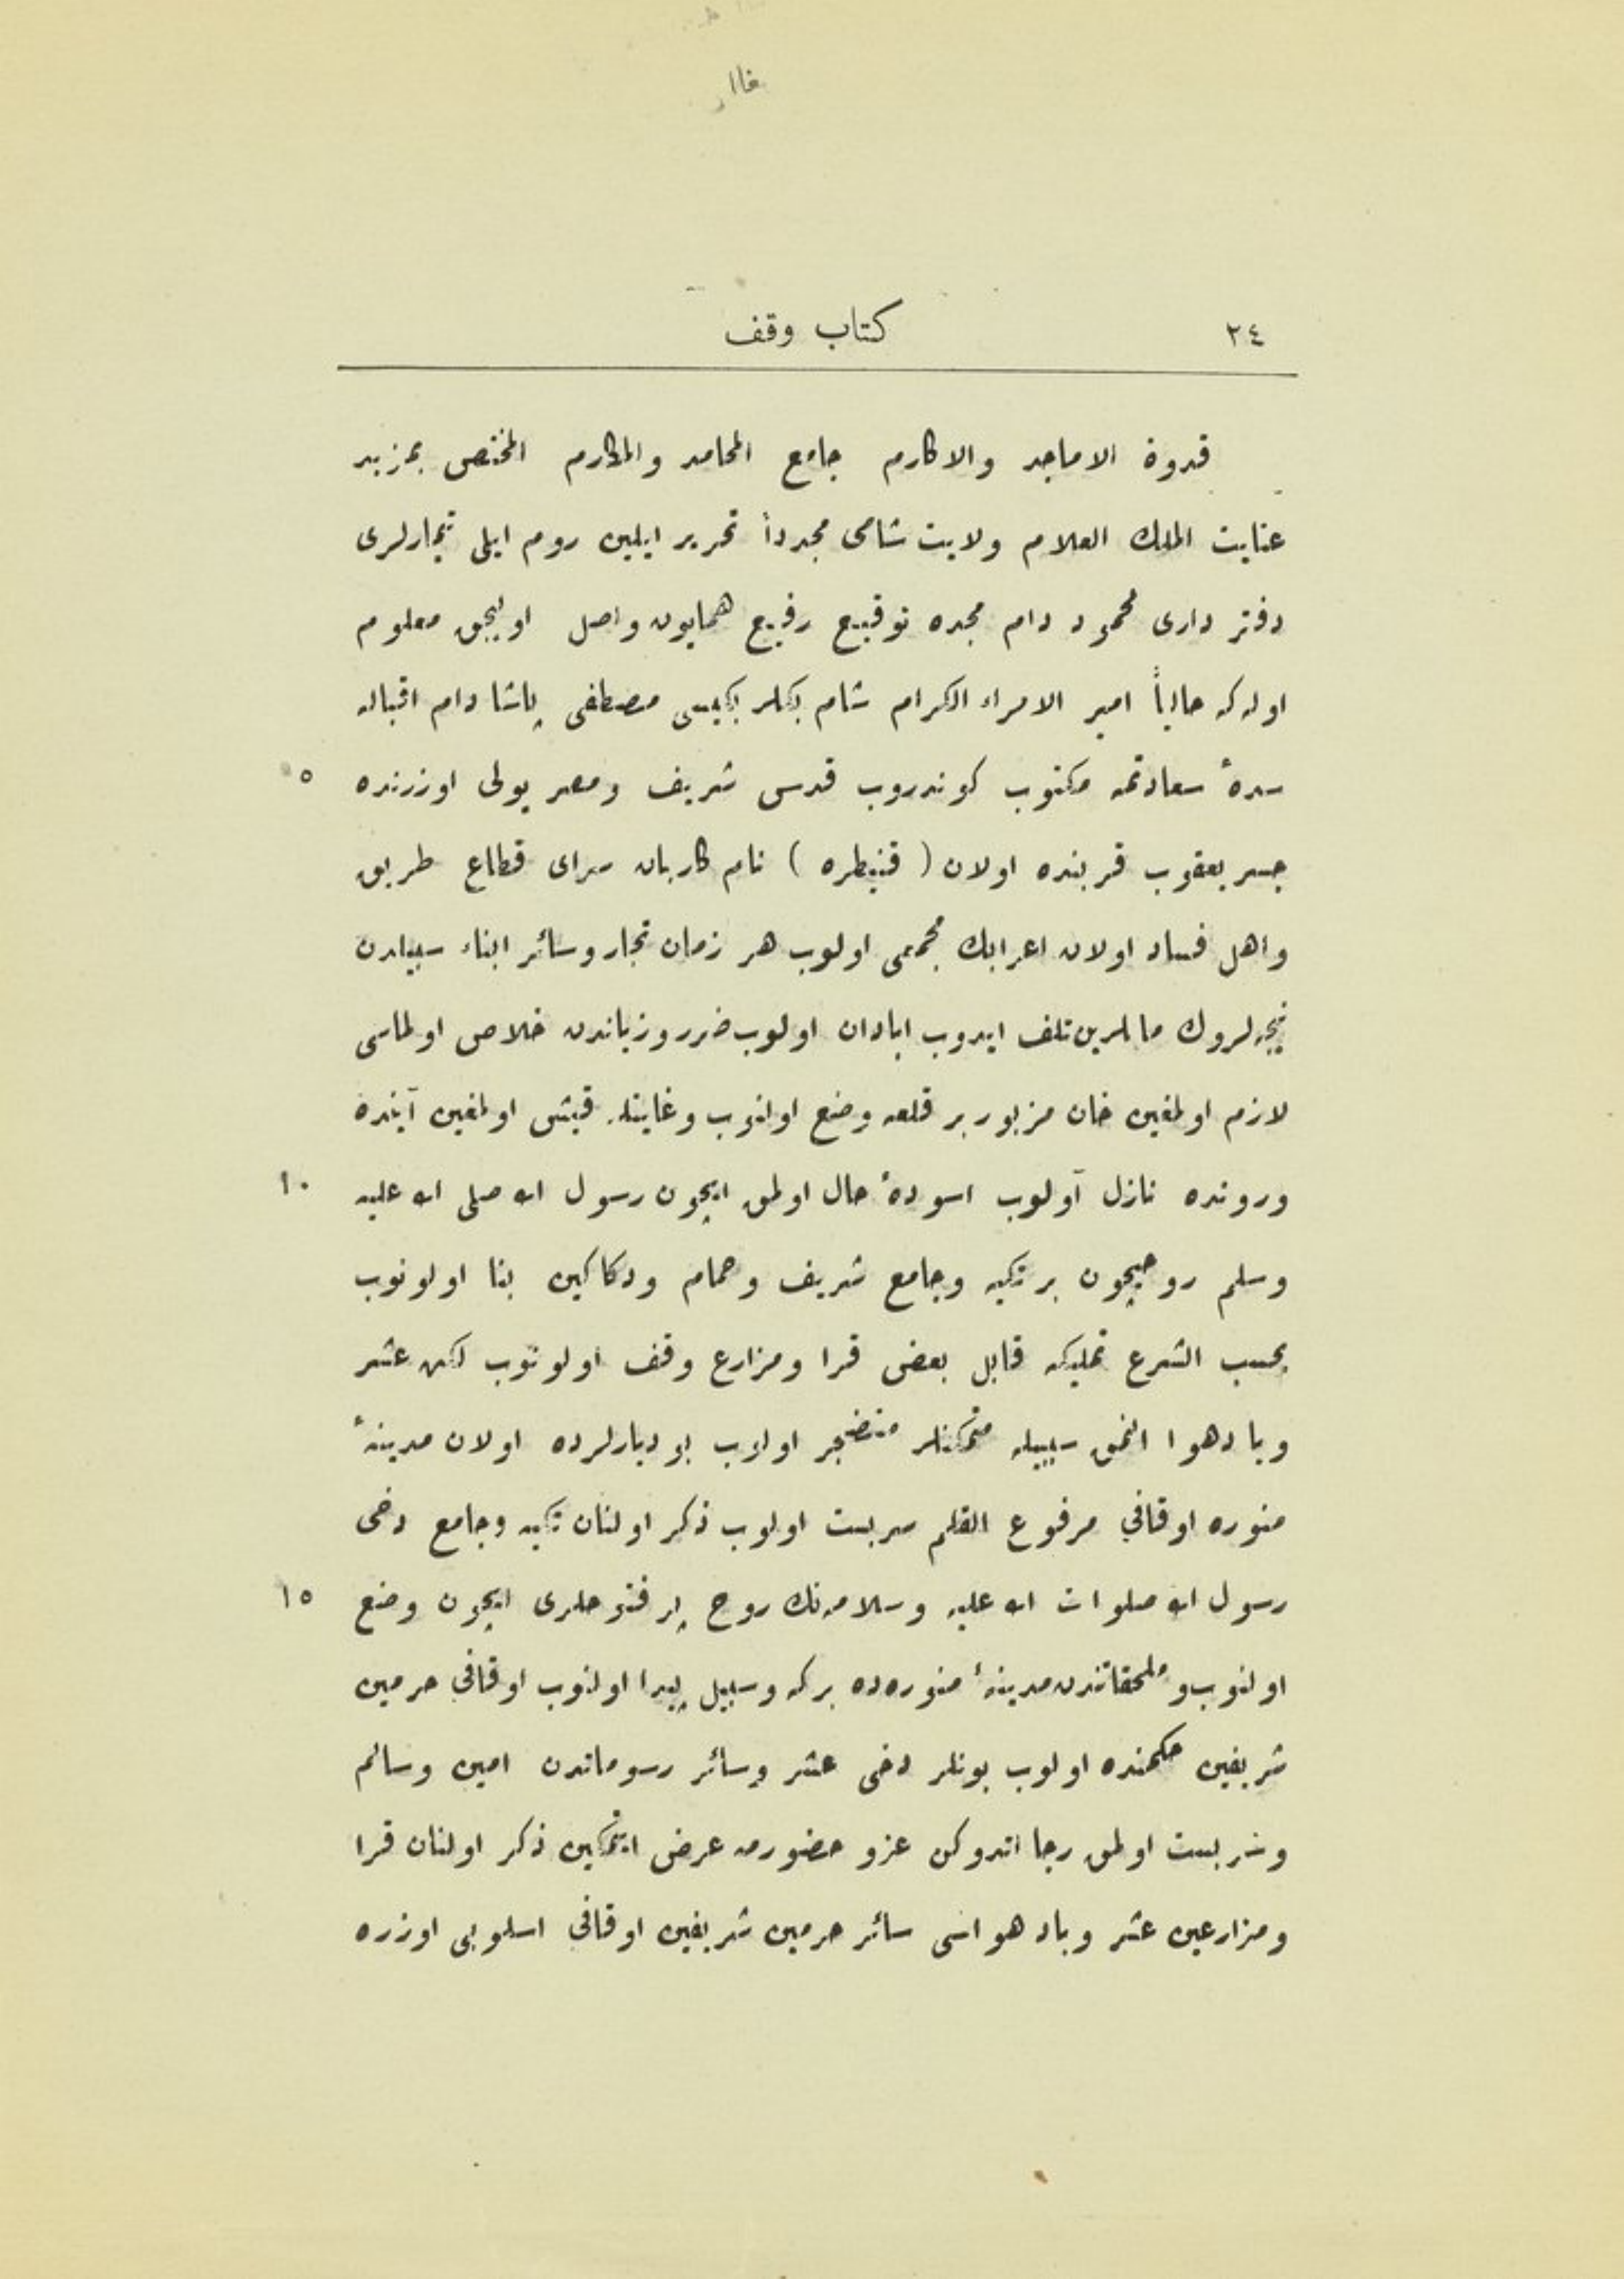 ٢٤ كتاب وقف
قدوة الاماجد والاكارم جامع المحامد والمكارم المختص بمزيد
عنايت الملك العلام ولايت شامى مجدداً تحرير ايلين روم ايلى تيمارلرى
دفتر دارى محمود دام مجده توقيع رفيع همايون واصل اوليجق معلوم
اوله كه حالياً امير الامراء الكرام شام بكلر بكيسى مصطفى پاشا دام اقباله
سدهٔ سعادتمه مكتوب كوندروب قدس شريف ومصر يولى اوزرنده
٥
جسر يعقوب قربنده اولان ( قنيطره ) نام كاربان سراى قطاع طريق
واهل فساد اولان اعرابك مجمعى اولوب هر زمان تجار وسائر ابناء سبيلدن
نيجه لروك ماللرين تلف ايدوب ابادان اولوب ضرر وزياندن خلاص اولماسى
لازم اولمغين خان مزبور بر قلعه وضع اولنوب وغايتله قيشى اولمغين آينده
ورونده نازل آولوب اسودهٔ حال اولمق ايچون رسول الله صلى الله عليه
١٠
وسلم روحيچون بر تكيه وجامع شريف وحمام ودكاكين بنا اولونوب
بحسب الشرع تمليكه قابل بعض قرا ومزارع وقف اولونوب لكن عشر
وبادهوا النمق سببيله متمكنلر منضجر اولوب بو ديارلرده اولان مدينهٔ
منوره اوقافي مرفوع القلم سربست اولوب ذكر اولنان تكيه وجامع دخى
رسول الله صلوات الله عليه وسلامه نك روح پر فتوحلرى ايچون وضع
١٥
اولنوب وملحقاتندن مدينهٔ منوره ده بركه وسبيل پيدا اولنوب اوقافي حرمين
شريفين حكمنده اولوب بونلر دخى عشر وسائر رسوماتدن امين وسالم
وسربست اولمق رجا اتدوكن عزو حضورمه عرض ايتمكين ذكر اولنان قرا
ومزارعين عشر وباد هواسى سائر حرمين شريفين اوقافي اسلوبى اوزره